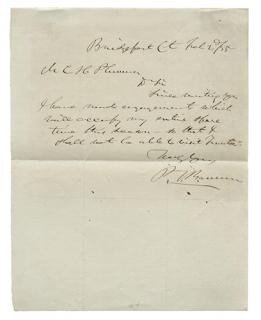 Bridgeport Ct Feb 2/55
Mr C H Plummer
Dr Sir
Since writing you
I have made engagements which
will occupy my entire spare
time this season - so that I
shall not be able to visit
Truly Yours
P. T. Barnum